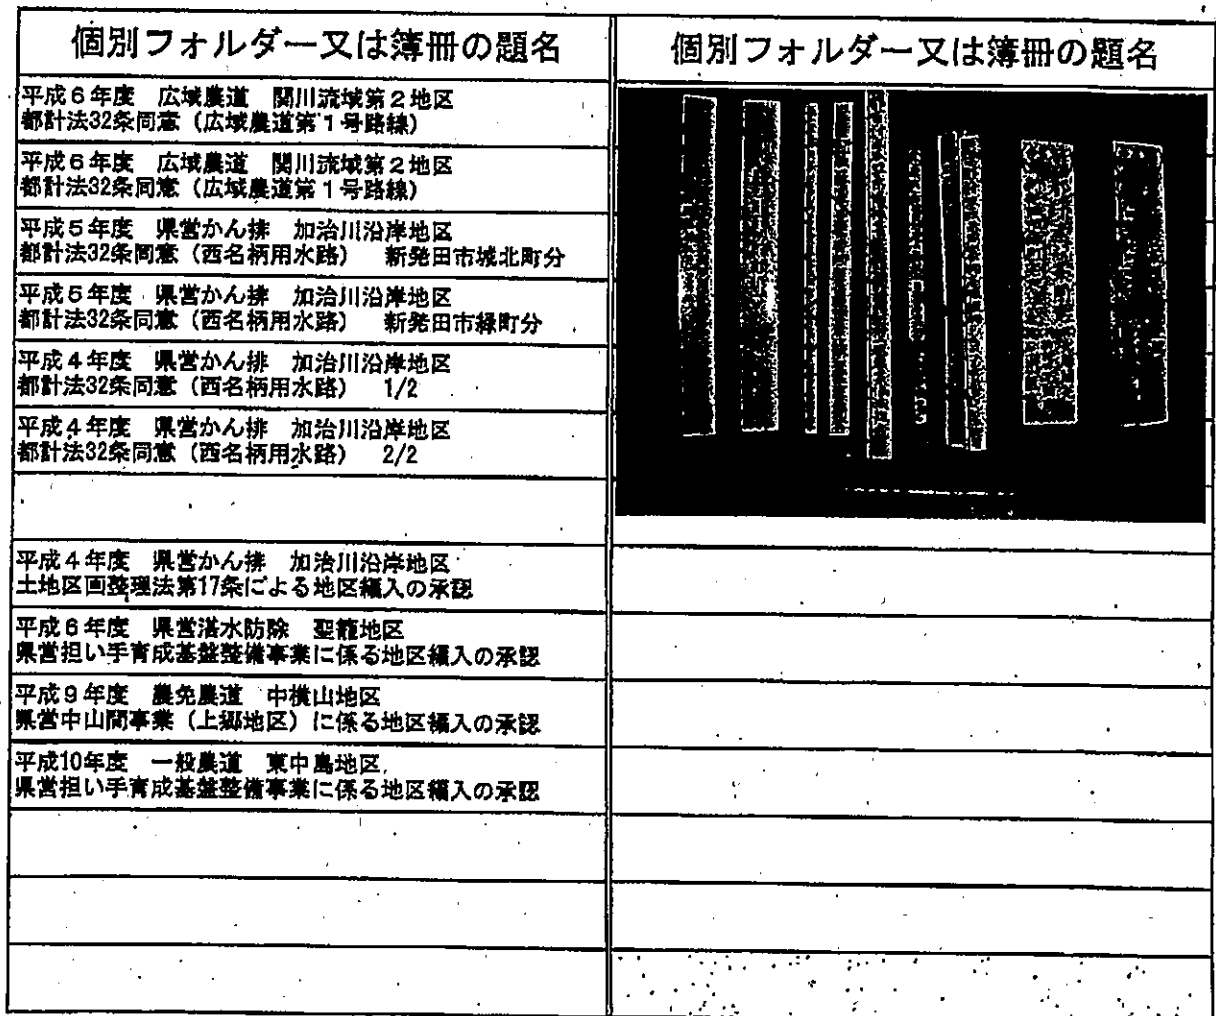 個別フォルダー又は簿冊の題名
平成6年度 広域農道 関川流域第2地区
都計法32条同意(広域農道第1号路線)
平成6年度 広域農道 関川流域第2地区
都計法32条同意(広域農道第1号路線)
平成5年度 県営かん排 加治川沿岸地区
都計法32条同意(西名柄用水路) 新発田市城北町分
平成5年度 県営かん排 加治川沿岸地区
都計法32条同意(西名柄用水路) 新発田市緑町分
平成4年度 県営かん排 加治川沿岸地区
都計法32条同意(西名柄用水路) 1/2
平成4年度 県営かん排 加治川沿岸地区
都計法32条同意(西名柄用水路) 2/2
平成4年度 県営かん排 加治川沿岸地区
土地区画整理法第17条による地区編入の承認
平成6年度 県営湛水防除 聖籠地区
県営担い手育成基盤整備事業に係る地区編入の承認
平成9年度 農免農道 中横山地区
県営中山間事業(上郷地区)に係る地区編入の承認
平成10年度 一般農道 東中島地区
県営担い手育成基盤整備事業に係る地区編入の承認
個別フォルダー又は簿冊の題名